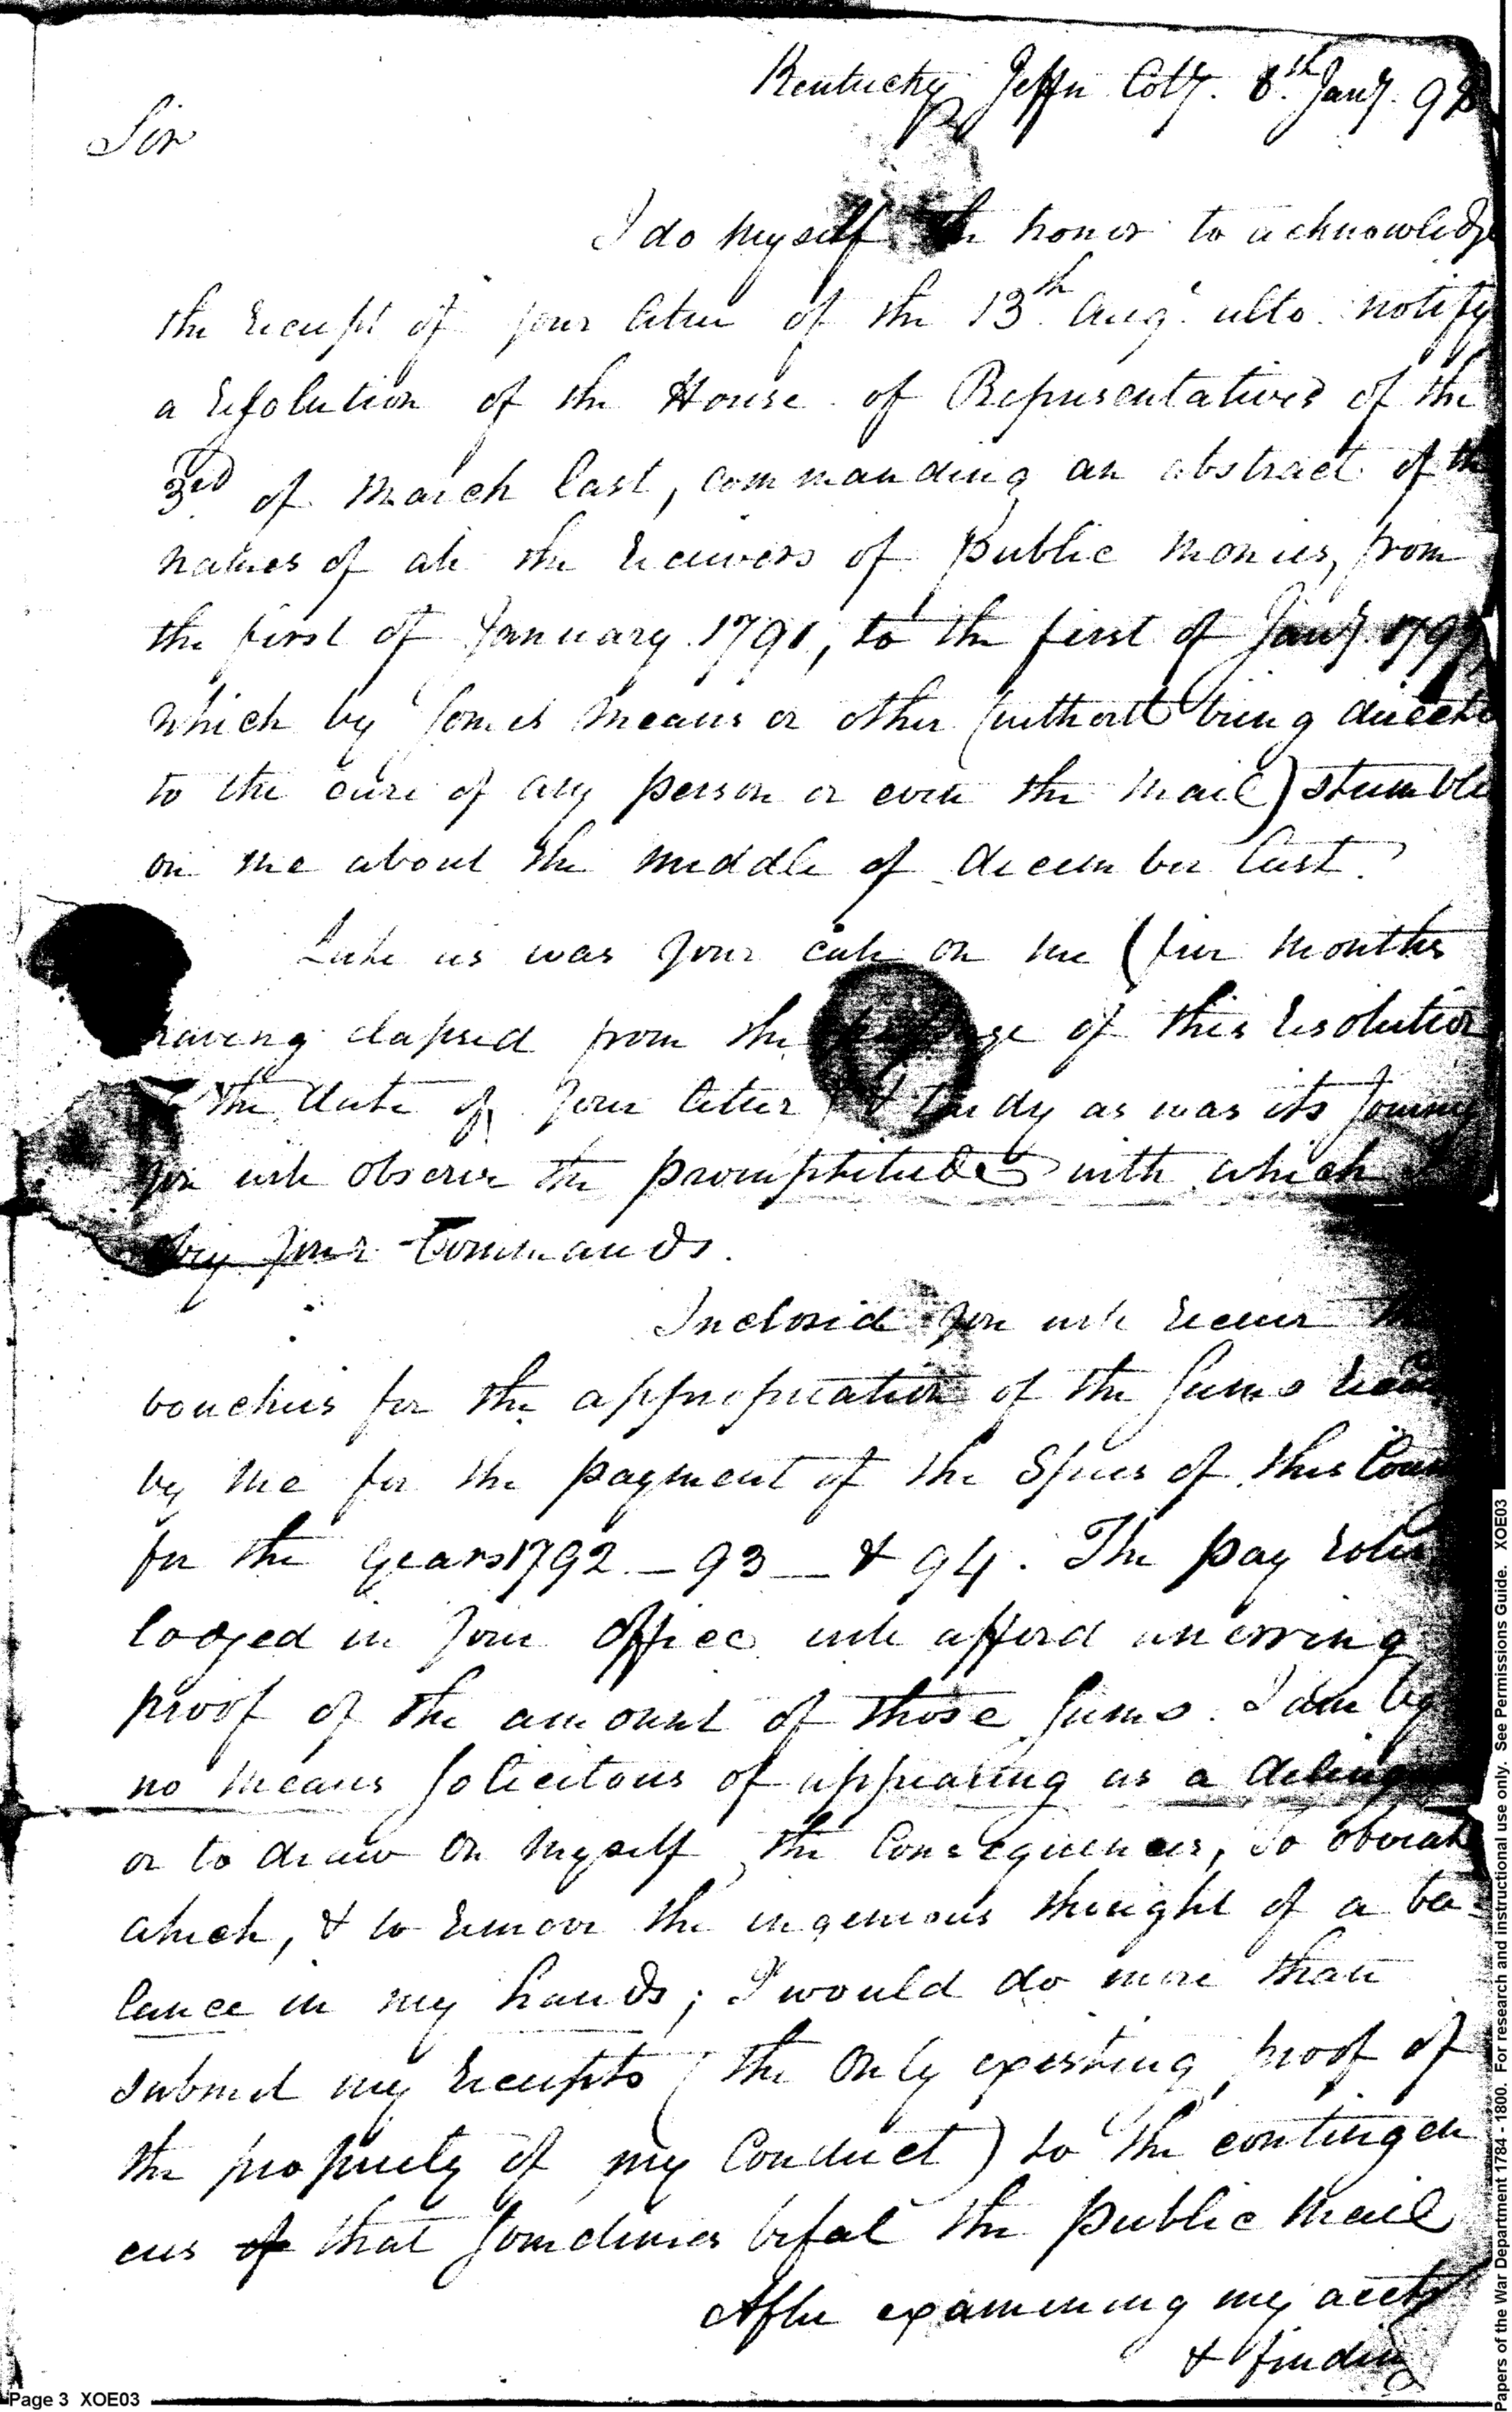 Kentucky Jeffn Coty. 8th Jany. 98
Sir
I do myself the honor to acknowledge
the receipt of your letter of the 13th Augt. ulto. notify
a resolution of the House of Representatives of the
3rd of March last, commanding an abstract of the
names of all the receivers of public monies, from
the first of January 1791, to the first of Jany. 1797
which by some means or other (without being directed
to the care of any person or even the mail) stumbled
on me about the middle of december last.
Late as was your call on me (five months
having elapsed from the passage of this resolution
the date of your letter) & tardy as was its Journey
you will observe the promptitude with which I
obey your Commands.
Inclosed you will receive the
vouchers for the appropriation of the sums
by me for the payment of the Spies of this
for the years 1792 — 93 — & 94. The pay rolls
lodged in your office will afford unerring
proof of the amount of those sums. I am by
no means solicitous of appearing as a
or to draw on myself the Consequences, to obviate
which, & to remove the ingenious thought of a ba-
lance in my hands; I would do more than
submit my receipts (the only existing proof of
the propriety of my Conduct) to the contingen
cies of that sometimes befal the public Mail
After examining my accts
& finding
Page 3 XOE03
Papers of the War Department 1784 - 1800. For research and instructional use only. See Permissions Guide. XOE03